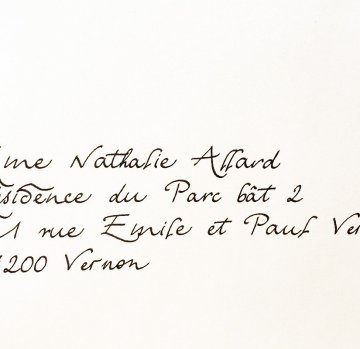 me Nathalie Allard
sidence du Parc bât 2
1 rue Emile et Paul Ver
200 Vernon